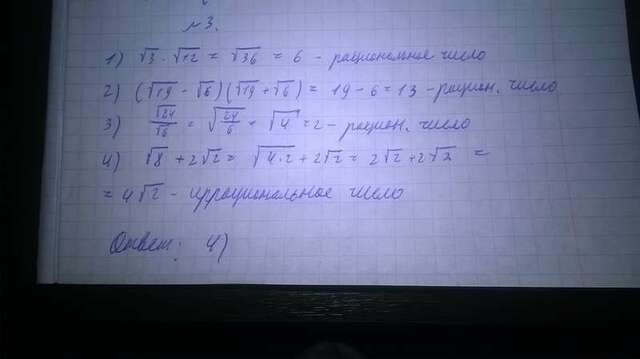 №3.
1) √3 · √12 = √36 = 6 - рациональное число
2) (√19 - √6)(√19 + √6) = 19 - 6 = 13 - рацион. число
3) √24/√6 = √(24/6) = √4 = 2 - рацион. число
4) √8 + 2√2 = √(4·2) + 2√2 = 2√2 + 2√2 =
= 4√2 - иррациональное число
Ответ: 4)